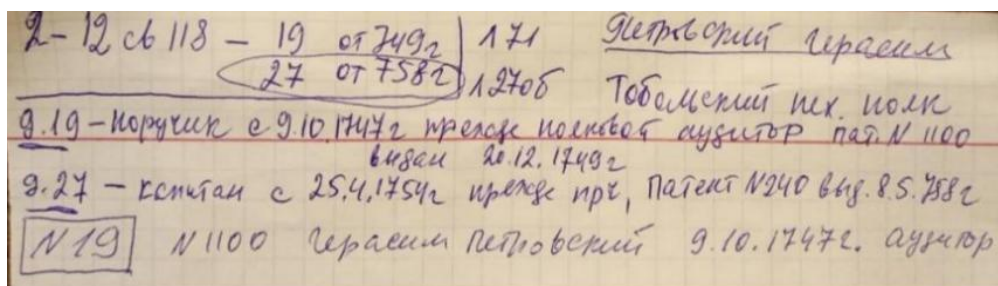 2-12 св 118 - 19 от 749г 171 Петровский Герасим
27 от 758г 127об Тобольский пех. полк
д.19 - поручик с 9.10.1747г прежде полковой аудитор пат. N 1100
выдан 20.12.1749г
д.27 - капитан с 25.4.1754г прежде прч, Патент N240 выд. 8.5.758г
N19 N1100 Герасим Петровский 9.10.1747г. аудитор